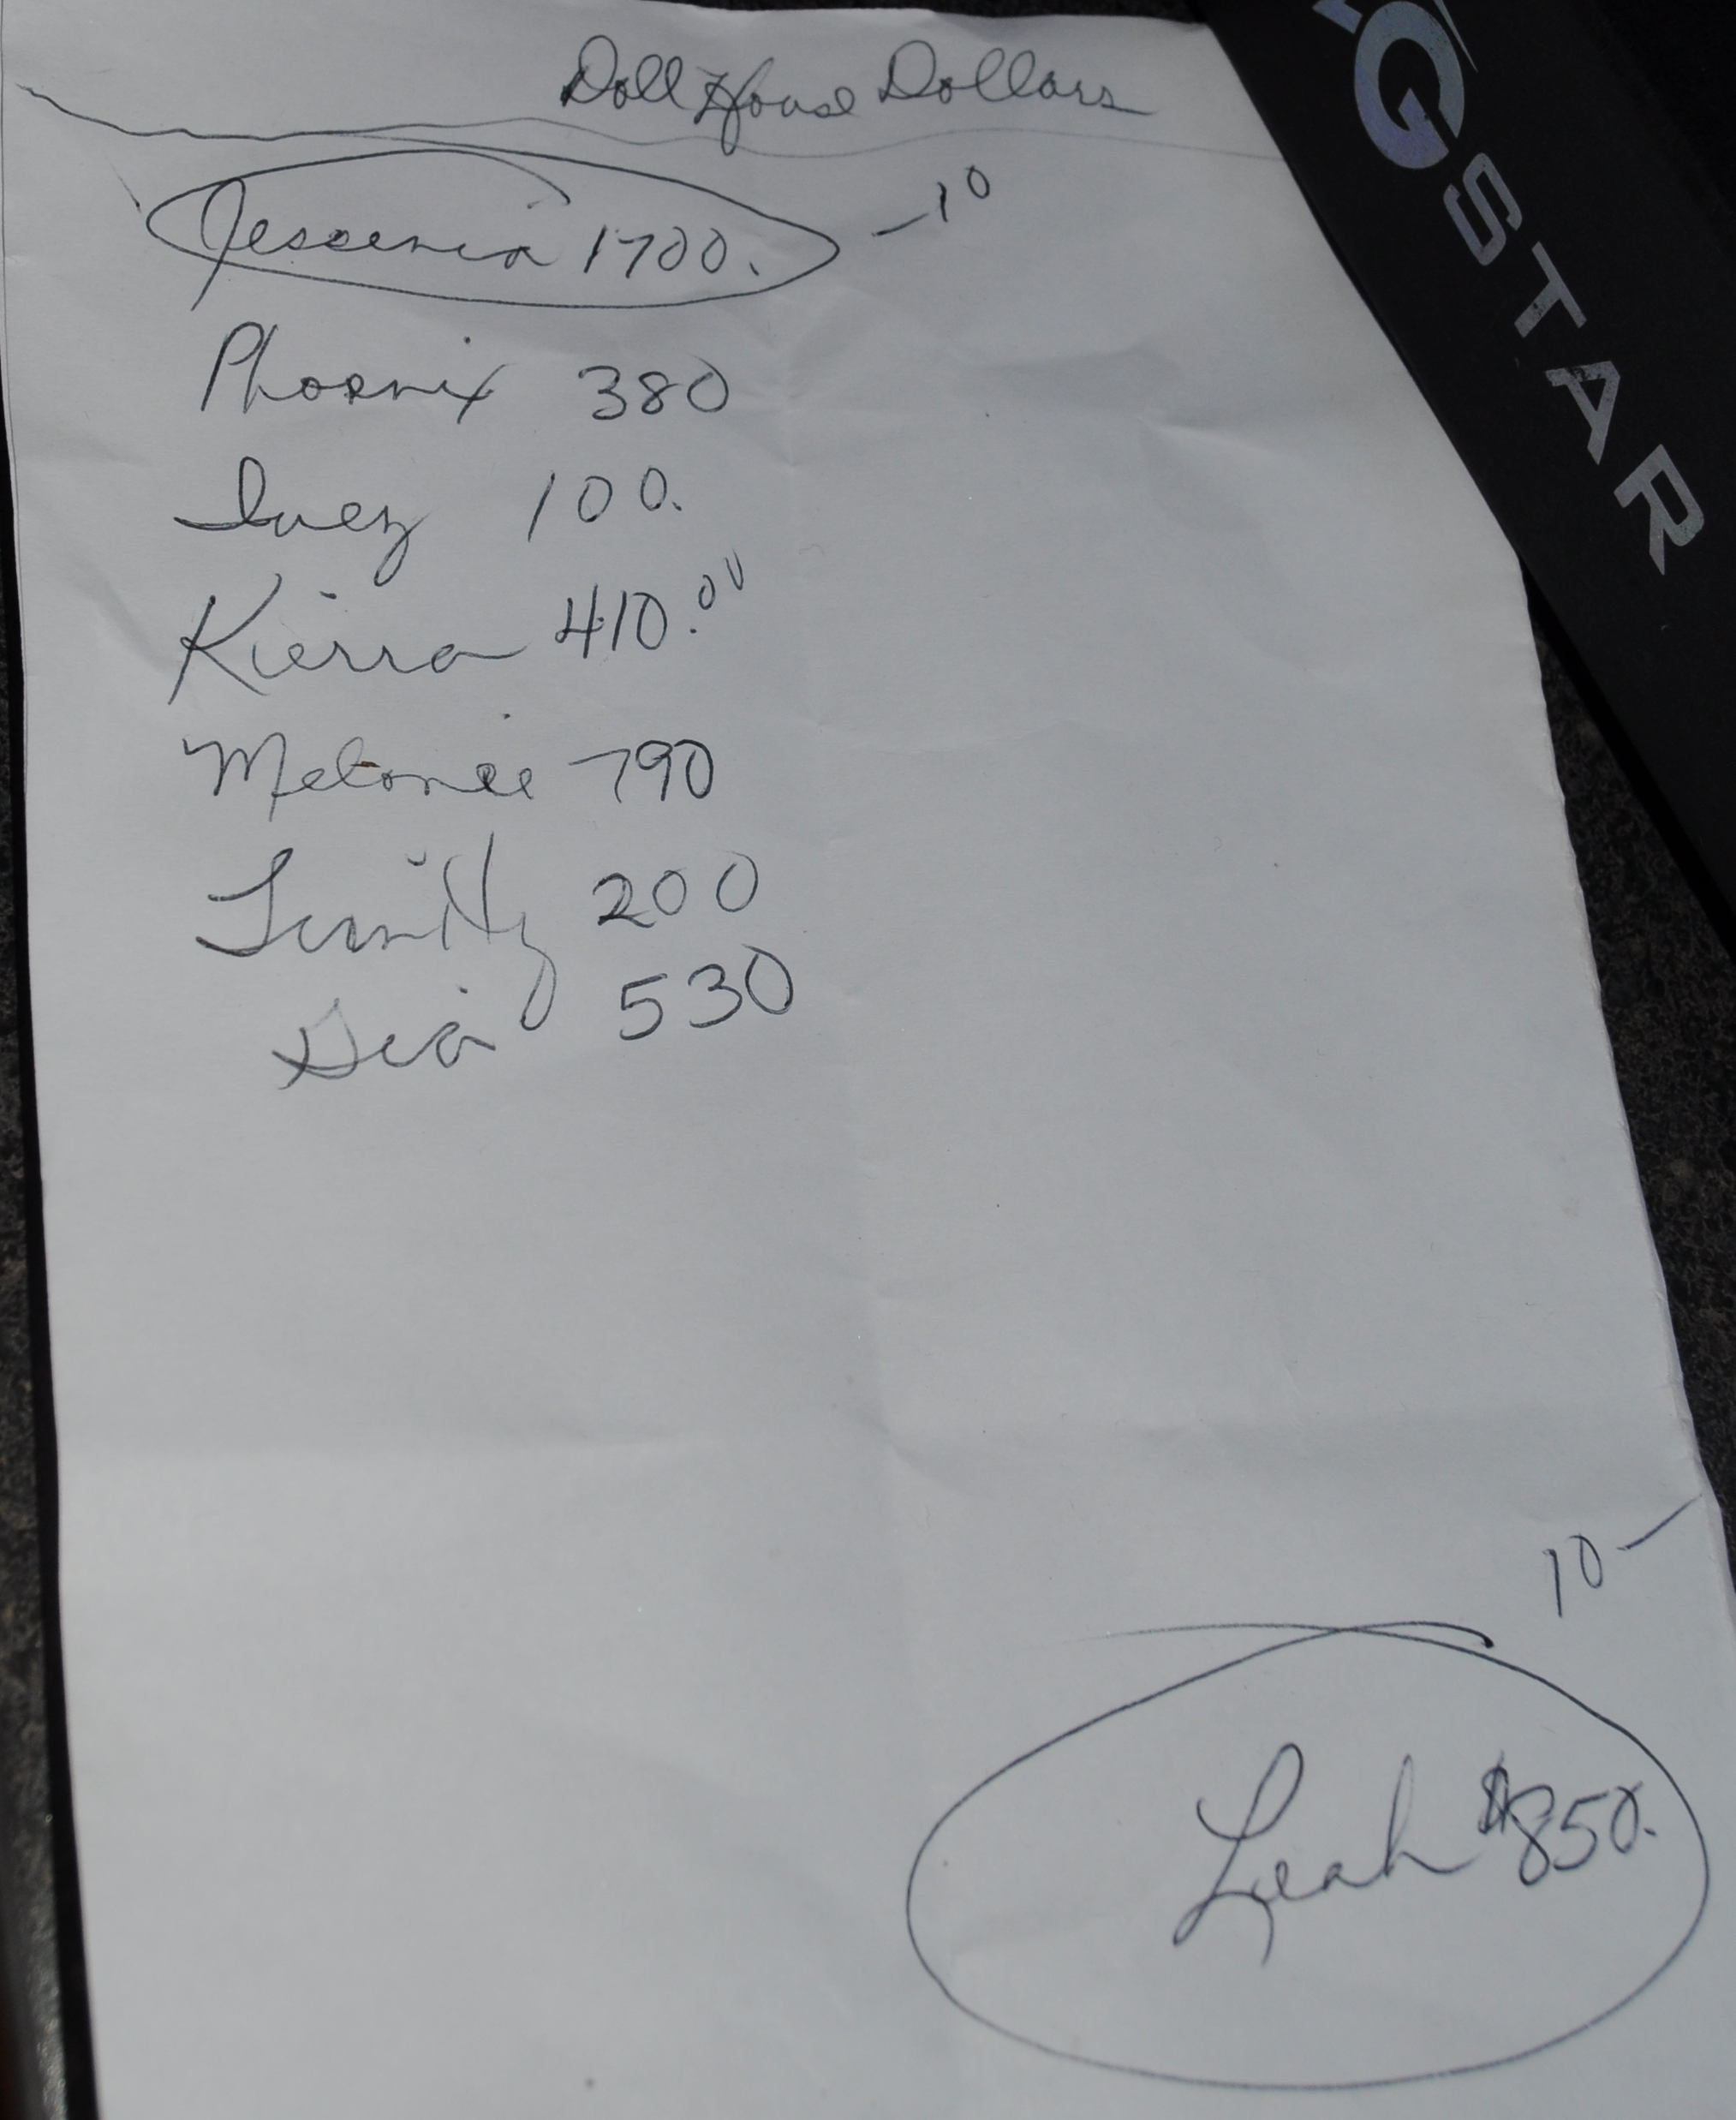 Doll House Dollars
Jessenia 1700. -10
Phoenix 380
Inez 100.
Kierra 410.00
Melonie 790
Trinity 200
Dia 530
10 -
Leah $850.
GSTAR